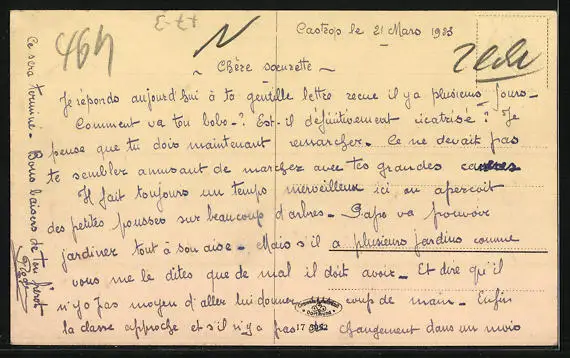 464
Castrop le 21 Mars 1923
~ Chère sœurette ~
Je réponds aujourd'hui à ta gentille lettre recue il y a plusieurs jours_
Comment va ton bobo_? Est-il définitivement icatrisé? Je
pense que tu dois maintenant remarcher_ Ce ne devait pas
te sembler amusant de marcher avec tes grandes
Il fait toujours un temps merveilleux ici on aperçoit
des petites pousses sur beaucoup d'arbres_ Papa va pouvoir
jardiner tout à son aise_ Mais s'il a plusieurs jardins comme
vous me le dites que de mal il doit avoir_ Et dire qu'il
n'y a pas moyen d'aller lui donner coup de main_ Enfin
la classe approche et s'il n'y a pas changement dans un mois
Ce sera terminé_ Bons baisers de ton frérot